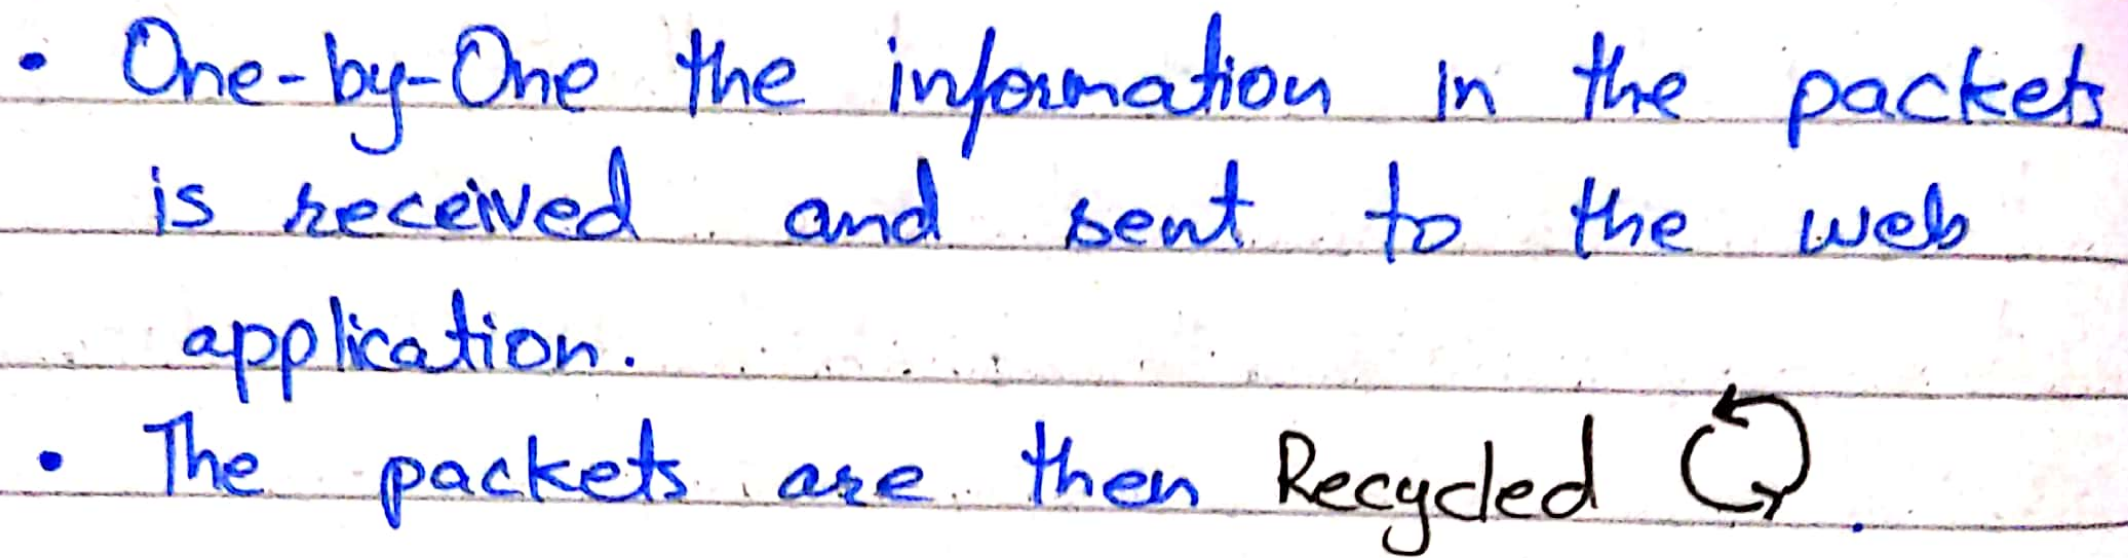 • One-by-One the information in the packets
is received and sent to the web
application.
• The packets are then Recycled 🔄.